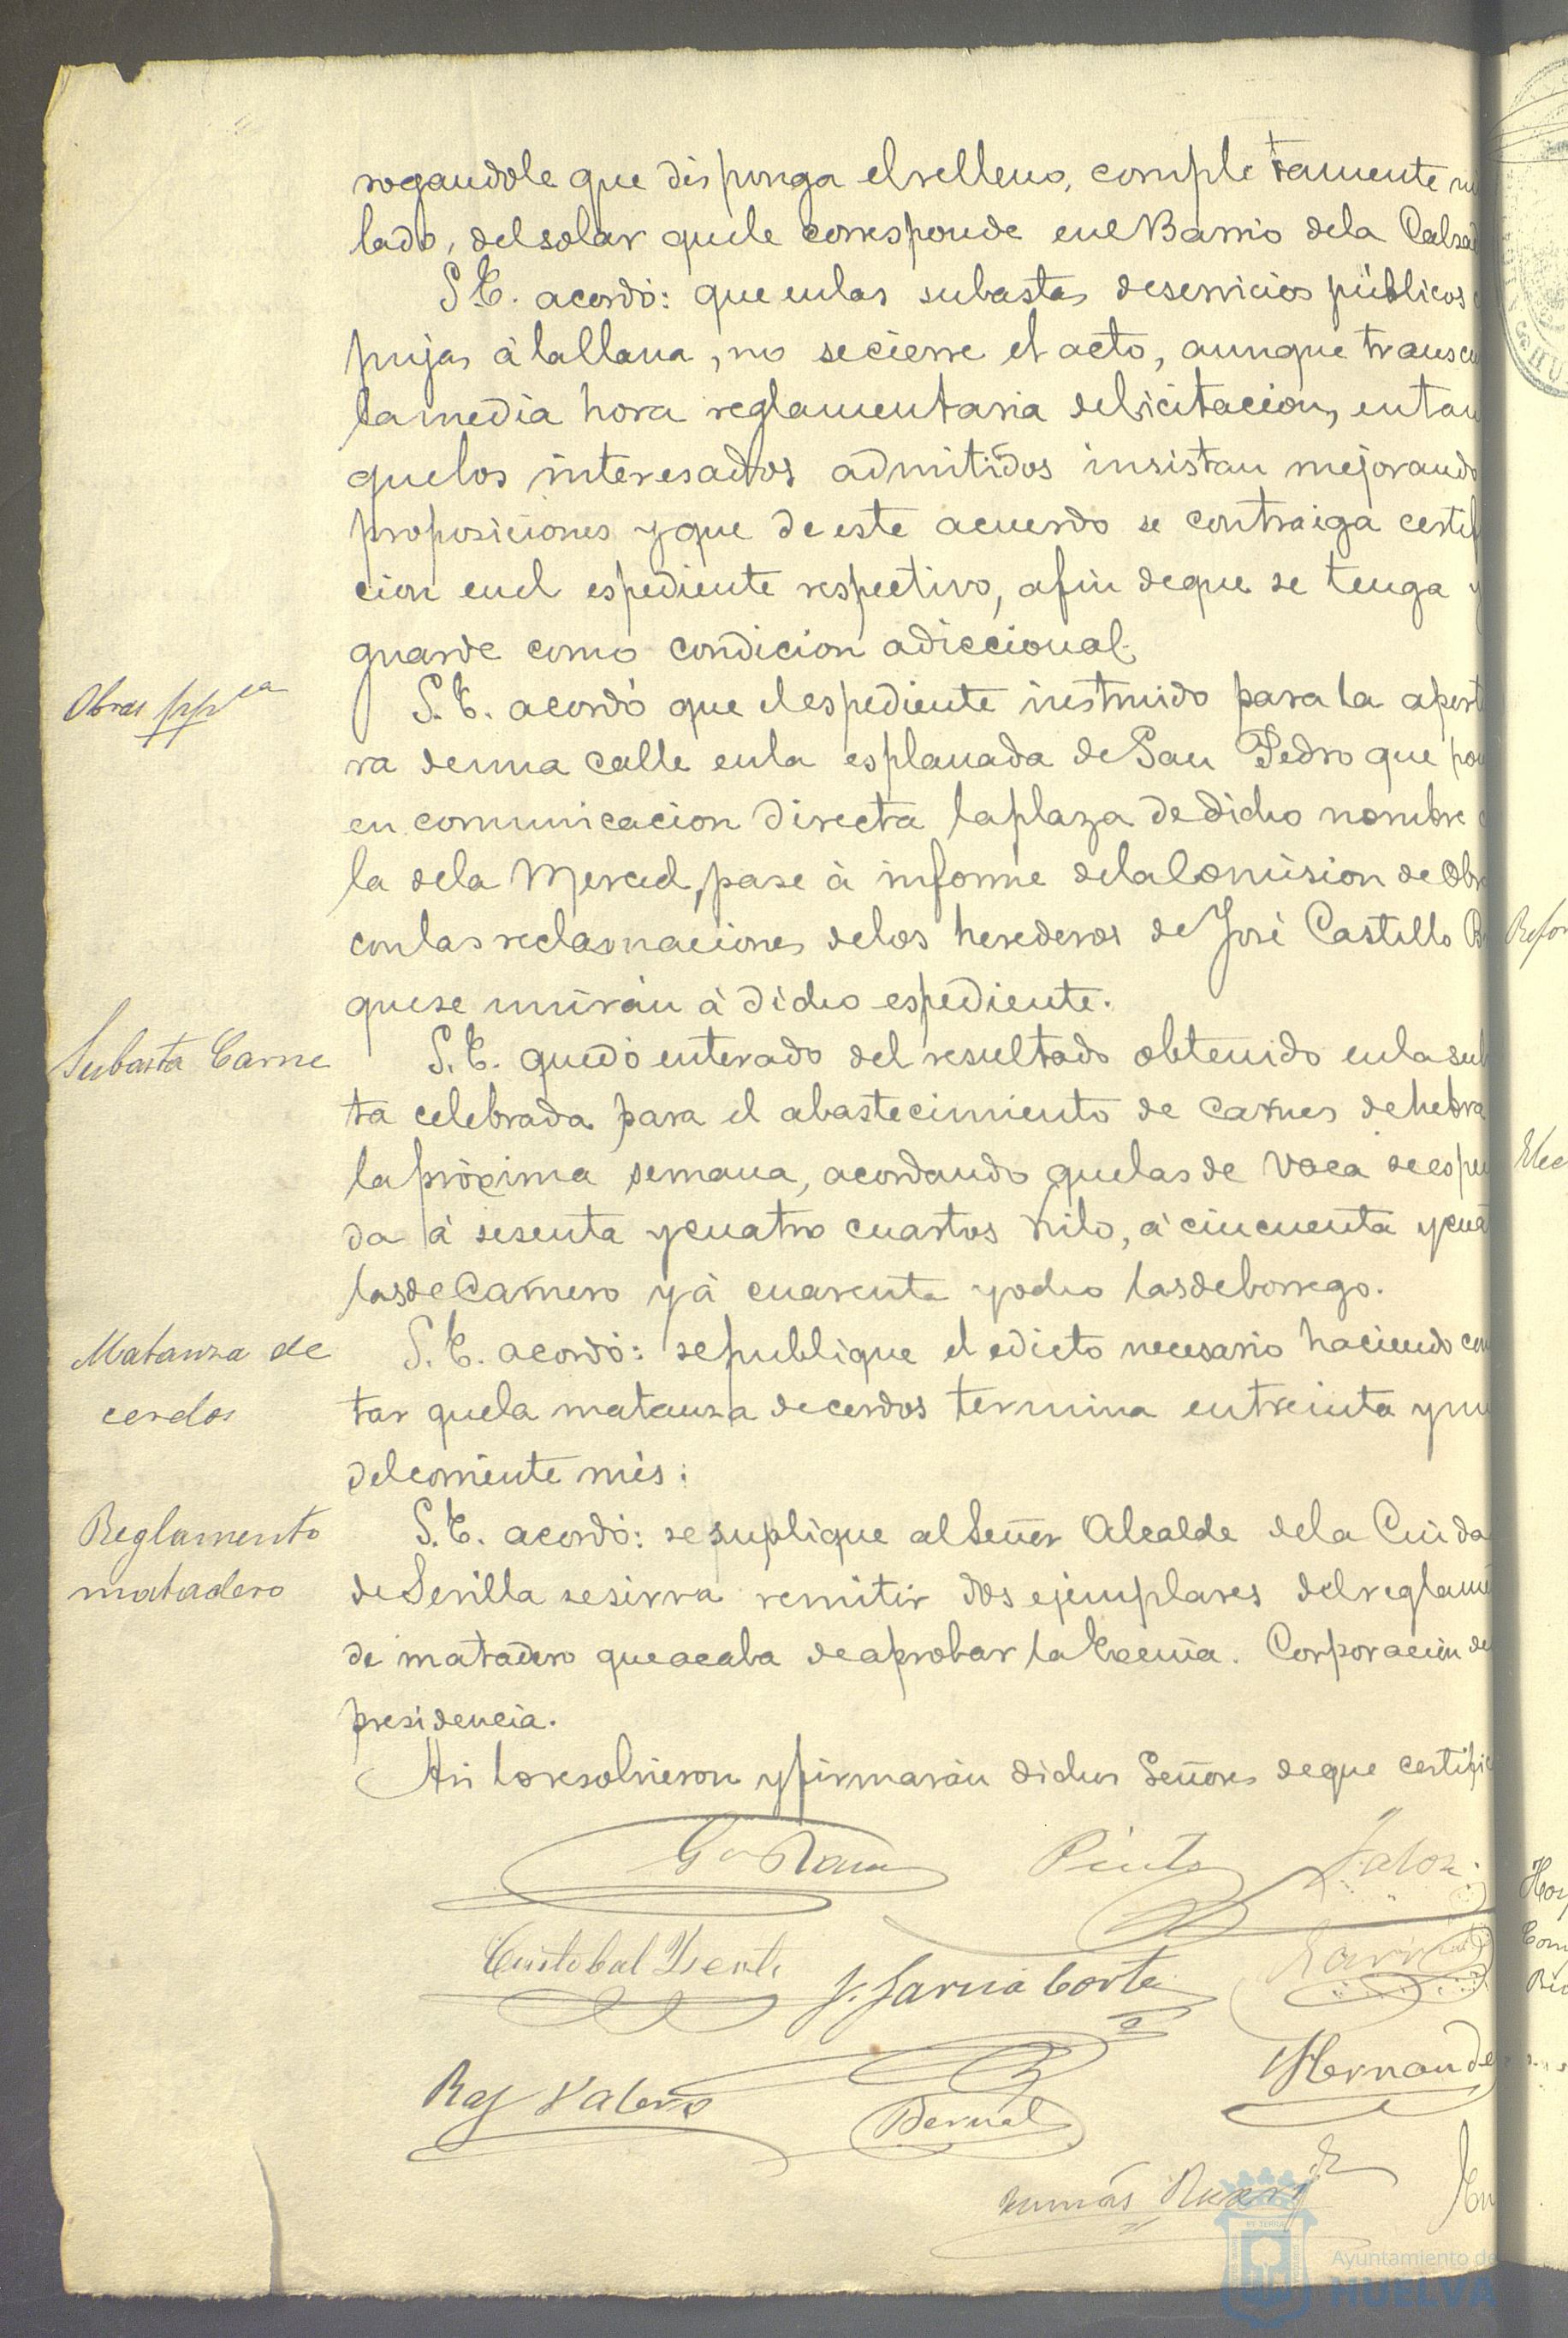 rogandole que disponga el relleno, completamente
lado, del solar que le corresponde en el Barrio de la Calza
S.E. acordó: que en las subastas de servicios públicos
pujas á la llana, no se cierre el acto, aunque transcu
la media hora reglamentaria de licitacion, en tan
que los interesados admitidos insistan mejorando
proposiciones y que de este acuerdo se contraiga certif
cion en el espediente respectivo, afin de que se tenga y
guarde como condicion adiccional.
Obras ppca
S.E. acordó que el espediente instruido para la apert
ra de una calle en la esplanada de San Pedro que pon
en comunicacion directa la plaza de dicho nombre
la de la Merced, pase á informe de la Comision de Obr
con las reclamaciones de los herederos de José Castillo
que se unirán á dicho espediente.
Subasta Carne
S.E. quedó enterado del resultado obtenido en la sub
ta celebrada para el abastecimiento de carnes de hebra
la próxima semana, acordando que las de vaca se espen
da á sesenta y cuatro cuartos kilo, á cincuenta y cua
las de Carnero y á cuarenta y ocho las de borrego.
Matanza de
cerdos
S.E. acordó: se publique el edicto necesario haciendo con
tar que la matanza de cerdos termina en treinta y un
del corriente mes:
Reglamento
matadero
S.E. acordó: se suplique al Señor Alcalde de la Ciuda
de Sevilla se sirva remitir dos ejemplares del reglame
de matadero que acaba de aprobar la Excma. Corporacion de
presidencia.
Asi lo resolvieron y firmarán dichos Señores de que certific
Pinto
Cristobal
J. Garcia Corte
Raf Valero
Bernal
Hernande
Ayuntamiento de
HUELVA